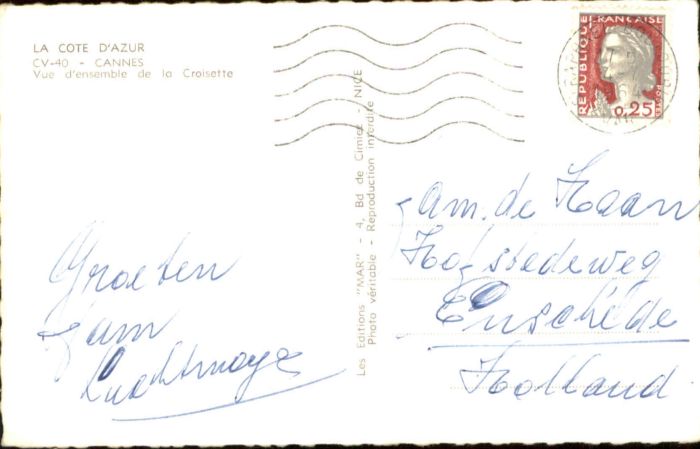 LA COTE D'AZUR
CV-40 - CANNES
Vue d'ensemble de la Croisette
REPUBLIQUE FRANÇAISE
POSTES
0,25
Les Editions "MAR" - 4, Bd de Cimiez - NICE
Photo véritable - Reproduction interdite
Groeten
fam
fam. de Haan
Hofstedeweg
Enschede
Holland